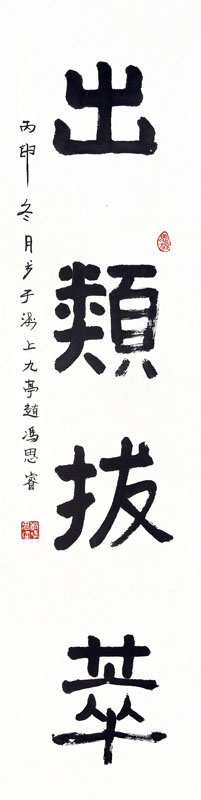 出類拔萃
丙申冬月书于海上九亭趙馮思睿